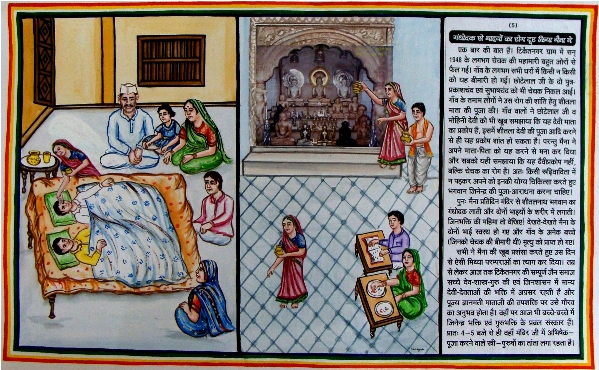 (5)
गंधोदक से भाइयों का रोग दूर किया मैना ने
एक बार की बात है। टिकैतनगर ग्राम में सन्
1948 के लगभग चेचक की महामारी बहुत जोरों से
फैल गई। गाँव के लगभग सभी घरों में किसी न किसी
को यह बीमारी हो गई। छोटेलाल जी के दो पुत्र-
प्रकाशचंद एवं सुभाषचंद को भी चेचक निकल आई।
गाँव के तमाम लोगों ने उस रोग की शांति हेतु शीतला
माता की पूजा की। गाँव वालों ने छोटेलाल जी व
मोहिनी देवी को भी खूब समझाया कि यह देवी माता
का प्रकोप है, इसमें शीतला देवी की पूजा आदि करने
से ही यह प्रकोप शांत हो सकता है। परन्तु मैना ने
अपने माता-पिता को यह करने से मना कर दिया
और सबको यही समझाया कि यह दैवीप्रकोप नहीं,
बल्कि चेचक का रोग है। अतः किसी रूढ़िवादिता में
न पड़कर अपने को इनकी योग्य चिकित्सा करते हुए
भगवान जिनेन्द्र की पूजा-आराधना करना चाहिए।
पुनः मैना प्रतिदिन मंदिर से शीतलनाथ भगवान का
गंधोदक लातीं और दोनों भाइयों के शरीर में लगातीं।
जिनभक्ति की महिमा तो देखिए! देखते-देखते मैना के
दोनों भाई स्वस्थ हो गए और गाँव के अनेक बच्चे
(जिनको चेचक की बीमारी थी) मृत्यु को प्राप्त हो गए।
सभी ने मैना की खूब प्रशंसा करते हुए उस दिन
से ऐसी मिथ्या परम्पराओं का त्याग कर दिया। तब
से लेकर आज तक टिकैतनगर की सम्पूर्ण जैन समाज
सच्चे देव-शास्त्र-गुरु की एवं जिनशासन में मान्य
देवी-देवताओं की भक्ति में अग्रसर रहती है और
पूज्य ज्ञानमती माताजी की तपशक्ति पर उसे गौरव
का अनुभव होता है। वहाँ पर आज भी बच्चे-बच्चे में
जिनेन्द्र भक्ति एवं गुरुभक्ति के प्रबल संस्कार हैं।
प्रातः 4-5 बजे से ही वहाँ मंदिर जी में अभिषेक-
पूजा करने वाले स्त्री-पुरुषों का तांता लगा रहता है।